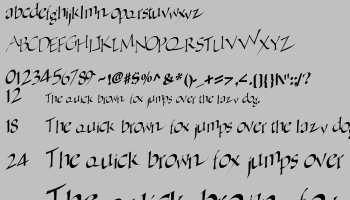 abcdefghijklmnopqrstuvwxyz
ABCDEFGHIJKLMNOPQRSTUVWXYZ
0123456789~!@#$%^&*()-_+=>,<.[]{}|\":;/?
12 The quick brown fox jumps over the lazy dog.
18 The quick brown fox jumps over the lazy do
24 The quick brown fox jumps over
The quick brown fox